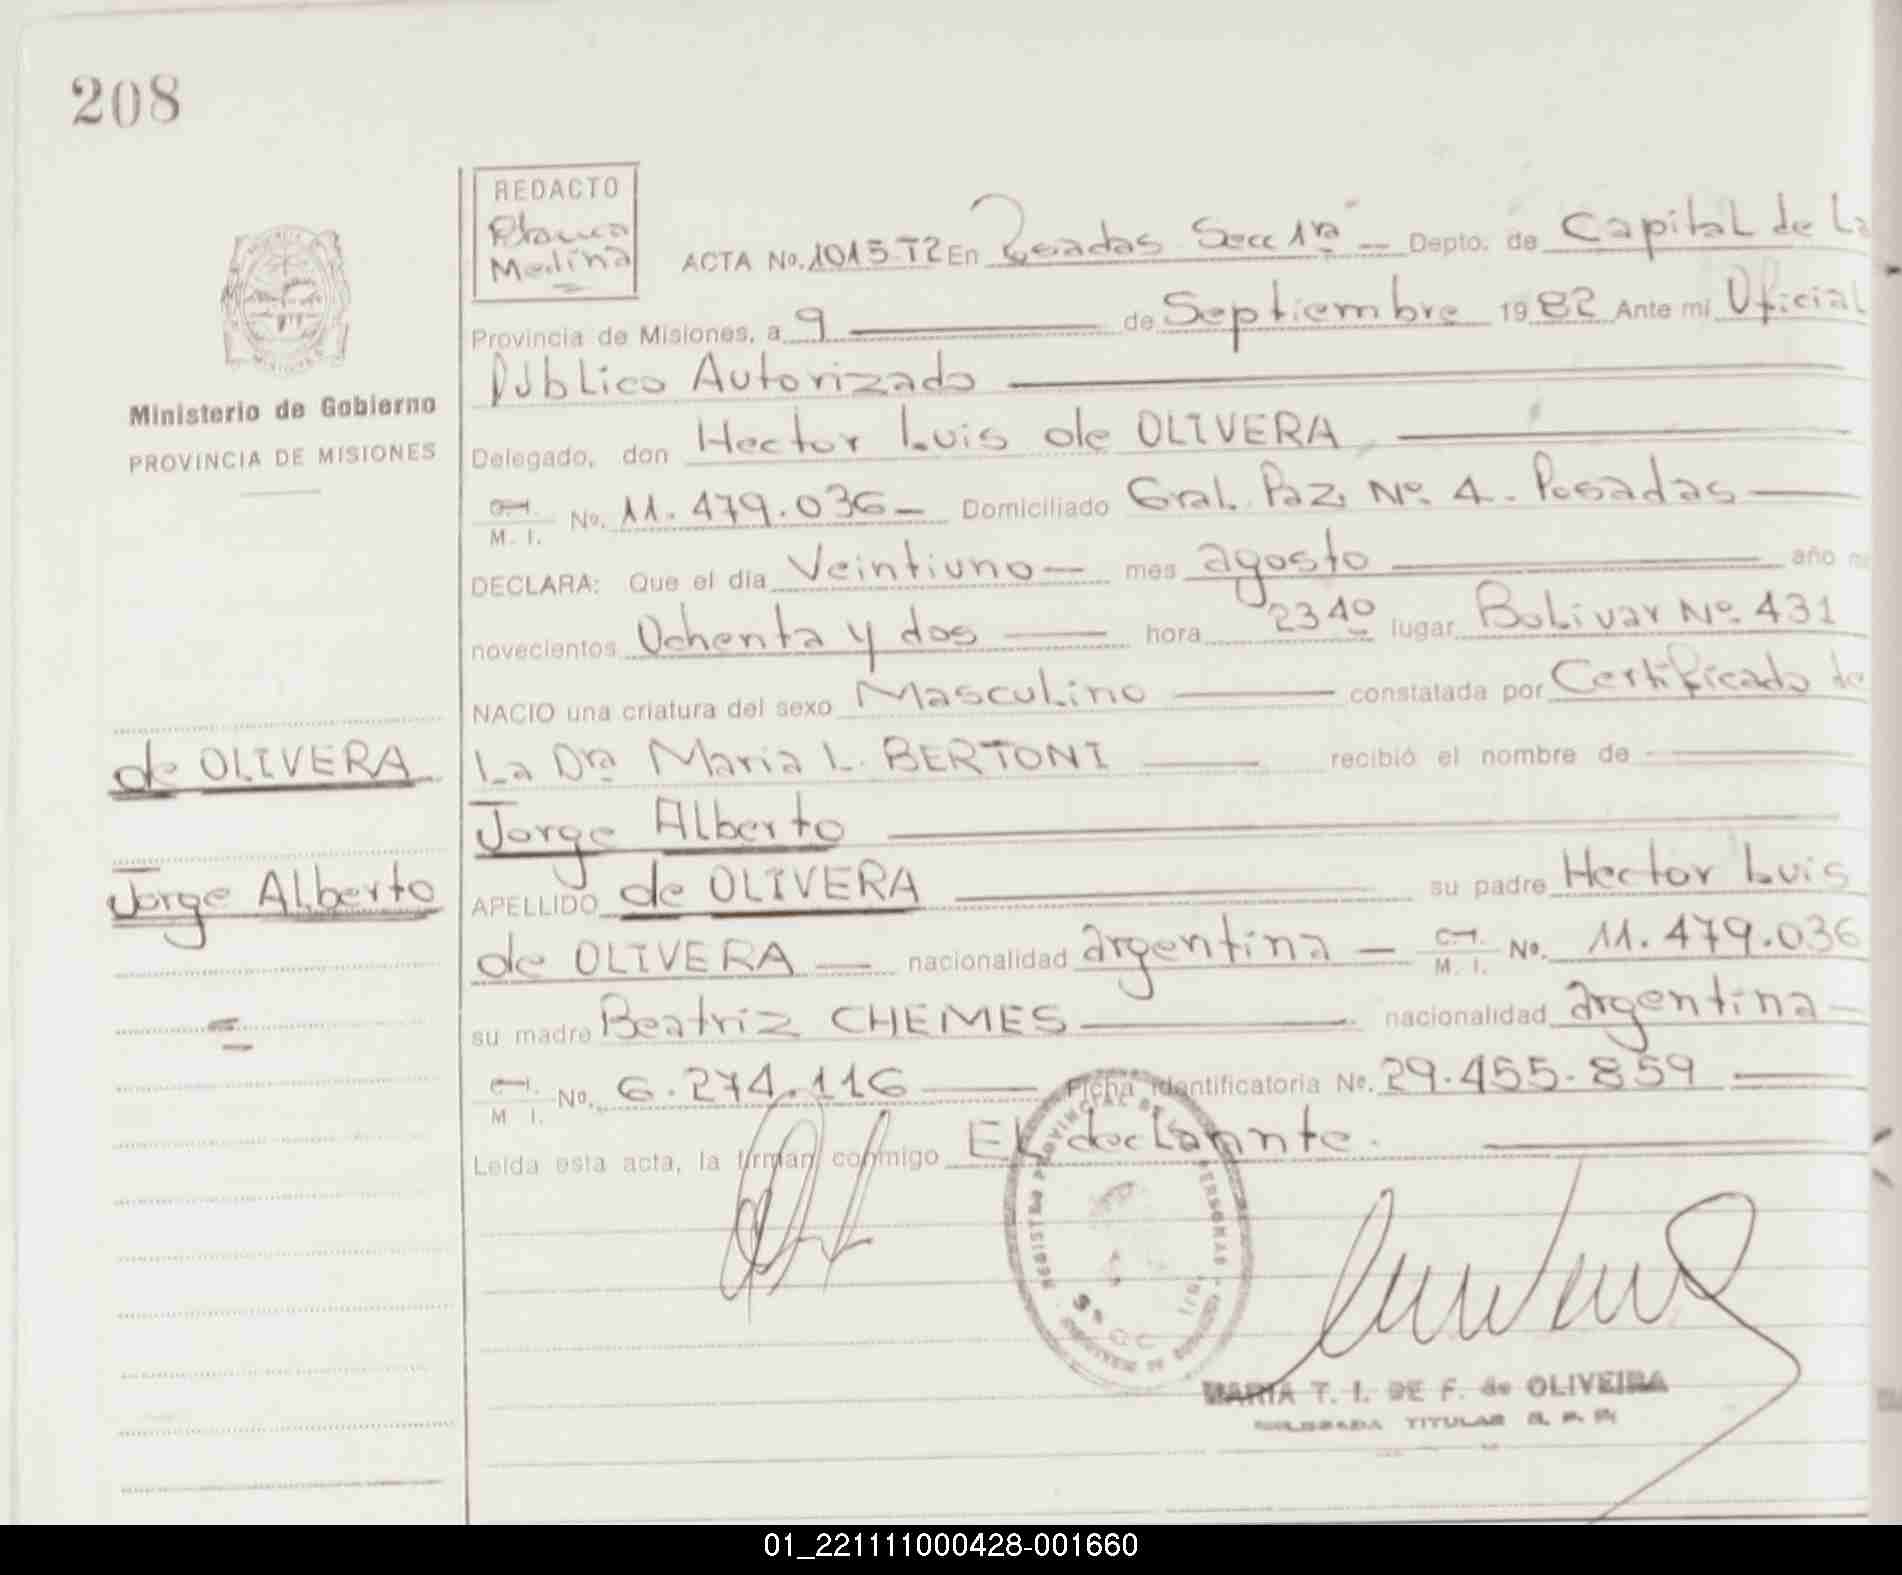 208
REDACTO
Blanca
Medina
ACTA No. 1015-T2 En Posadas Secc 1ra Depto. de Capital de La
Provincia de Misiones, a 9 de Septiembre 1982 Ante mi Oficial
Público Autorizado
Delegado, don Hector Luis de OLIVERA
C.I. M. I. No. 11.479.036 Domiciliado Gral. Paz. No. 4. Posadas
DECLARA: Que el día Veintiuno mes agosto año
novecientos Ochenta y dos hora 23 40 lugar Bolivar No. 431
NACIO una criatura del sexo Masculino constatada por Certificado de
La Dra Maria L. BERTONI recibió el nombre de
Jorge Alberto
APELLIDO de OLIVERA su padre Hector Luis
de OLIVERA nacionalidad argentina C.I. M. I. No. 11.479.036
su madre Beatriz CHEMES nacionalidad argentina
C.I. M I. No. 6.274.116 Ficha Identificatoria No. 29.455.859
Leída esta acta, la firman conmigo EL declarante.
Ministerio de Gobierno
PROVINCIA DE MISIONES
de OLIVERA
Jorge Alberto
REGISTRO PROVINCIAL DE LAS PERSONAS
MARIA T. I. DE F. de OLIVEIRA
DELEGADA TITULAR R. P. P.
01_221111000428-001660